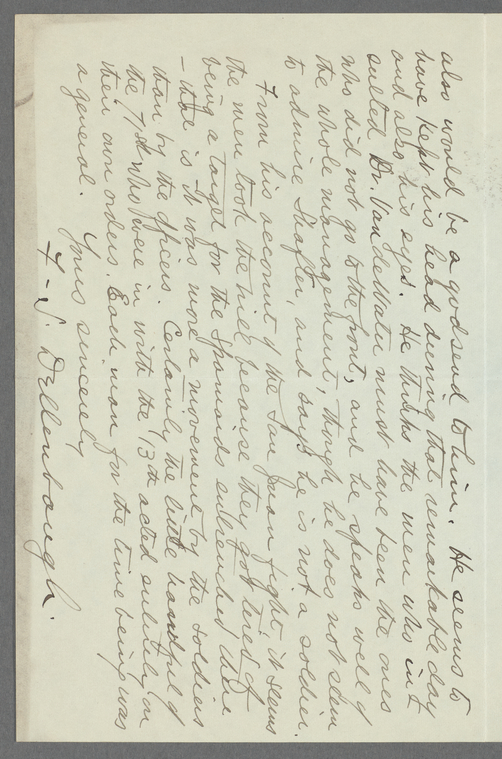 also would be a godsend to him. He seems to
have kept his head during that remarkable day
and also his eyes. He thinks the men who in=
sulted Dr. Van DeWater must have been the ones
who did not go to the front, and he speaks well of
the whole management, though he does not seem
to admire Shafter, and says he is not a soldier.
From his account of the San Juan fight, it seems
the men took the hill because they got tired of
being a target for the Spaniards entrenched there
- that is it was more a movement by the soldiers
than by the officers. Certainly the little handful of
the 71st who were in with the 13th acted entirely on
their own orders. Each man for the time being was
a general.
Yours sincerely
F-S. Dellenbaugh.